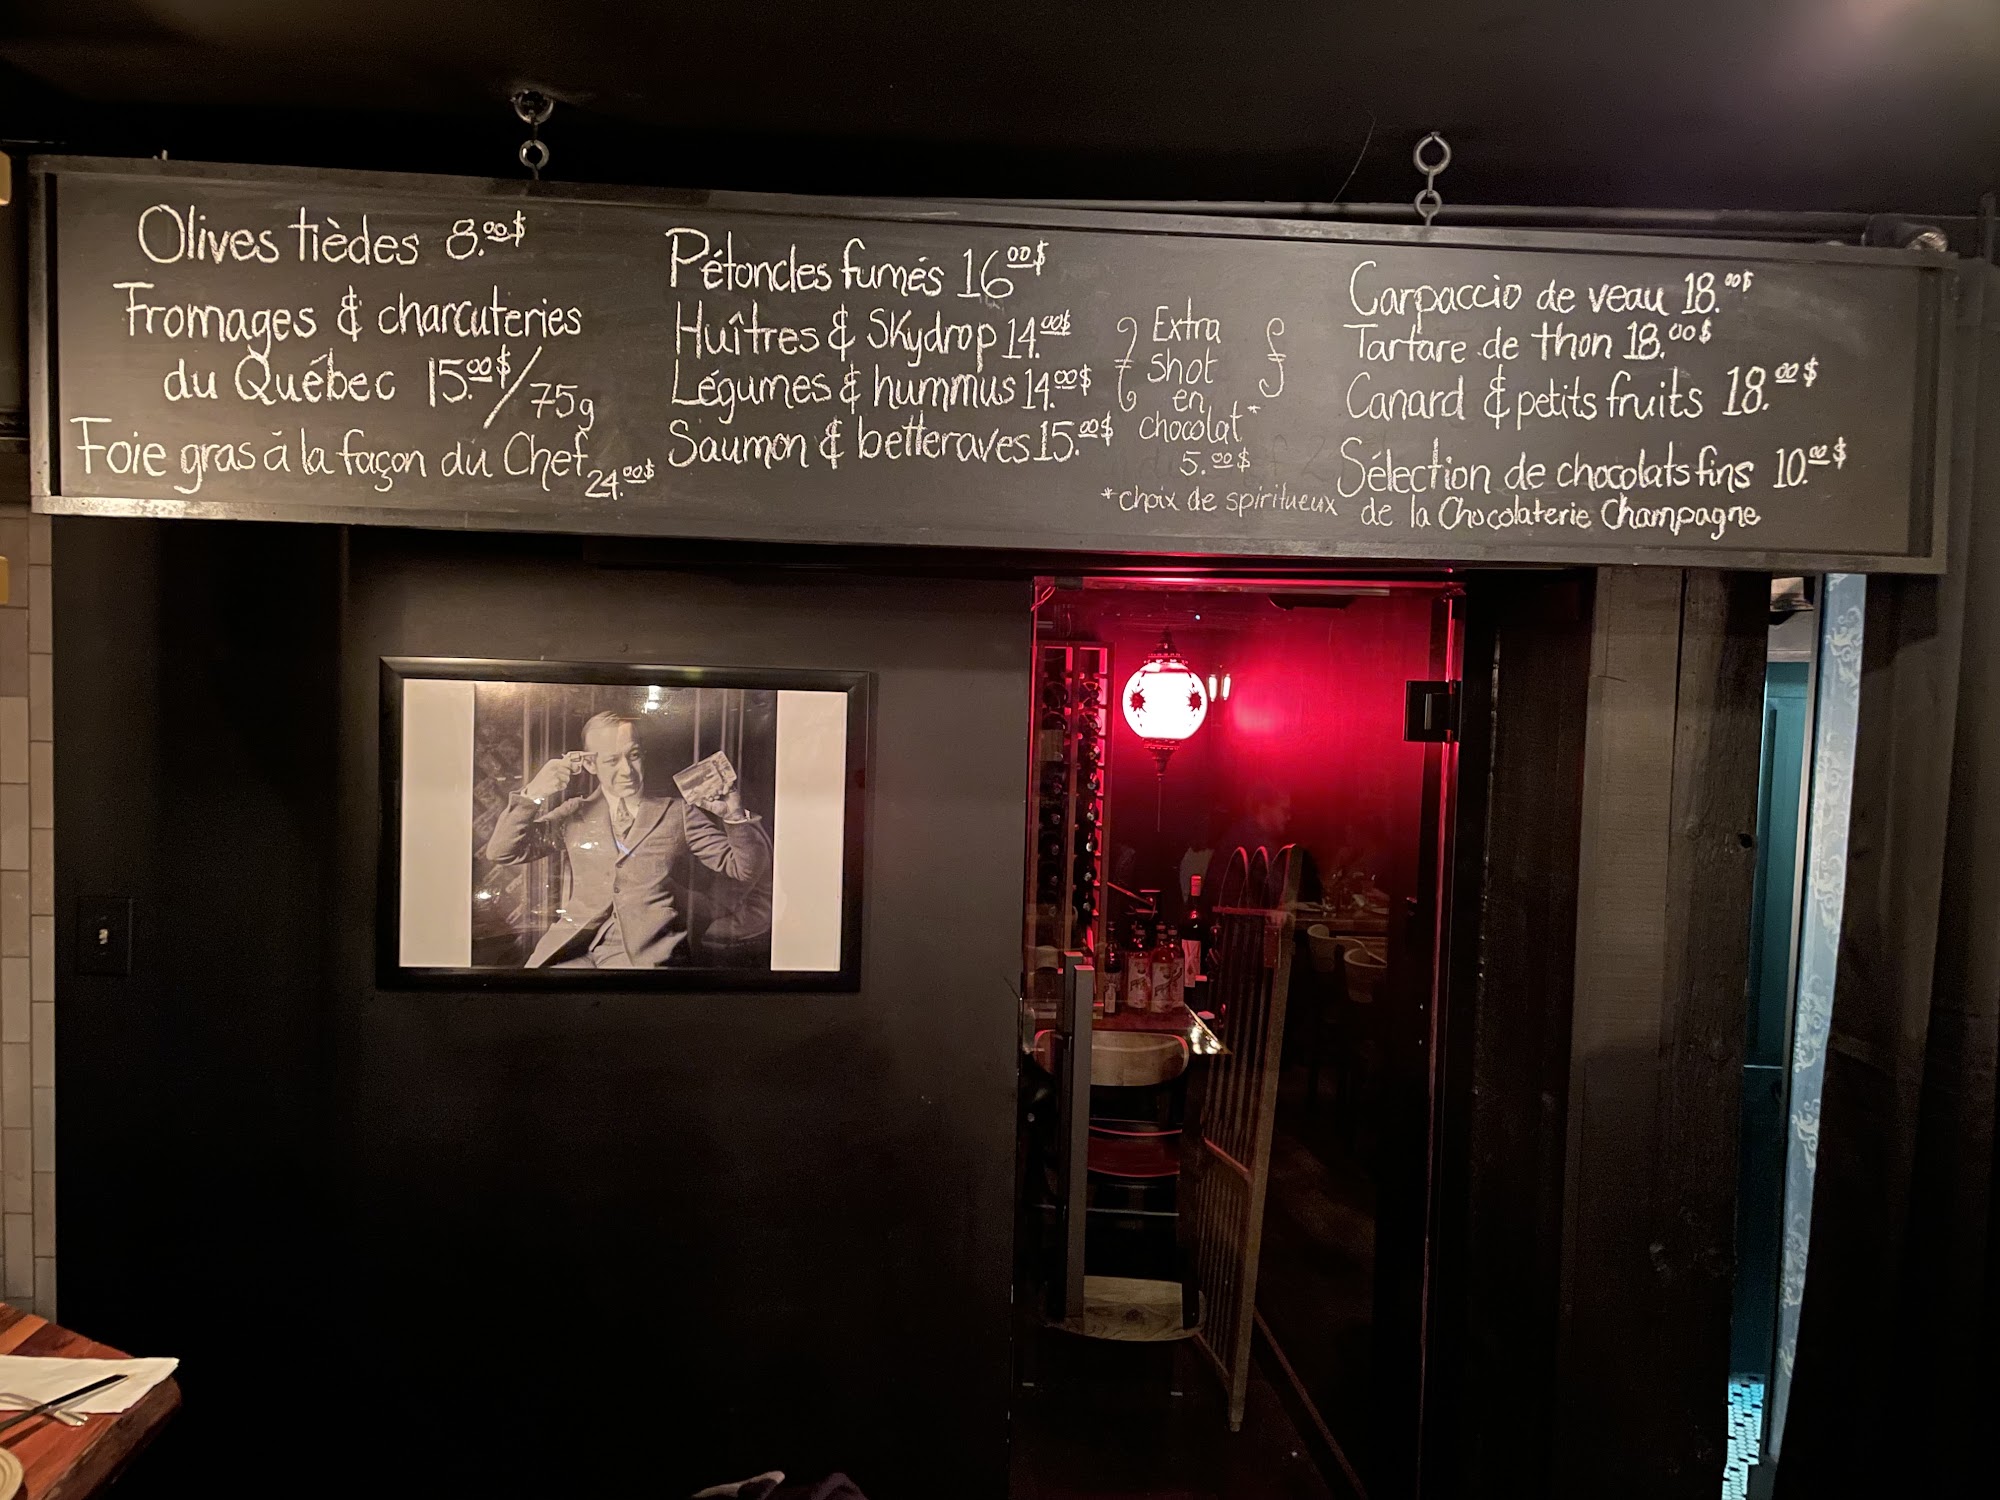 Olives tièdes 8.00$
Fromages & charcuteries
du Québec 15.00$/75g
Foie gras à la façon du Chef 24.00$
Pétoncles fumés 16 00$
Huîtres & Skydrop 14.00$
Légumes & hummus 14.00$
Saumon & betteraves 15.00$
Extra
shot
en
chocolat*
5.00$
*choix de spiritueux
Carpaccio de veau 18.00$
Tartare de thon 18.00$
Canard & petits fruits 18.00$
Sélection de chocolats fins 10.00$
de la Chocolaterie Champagne